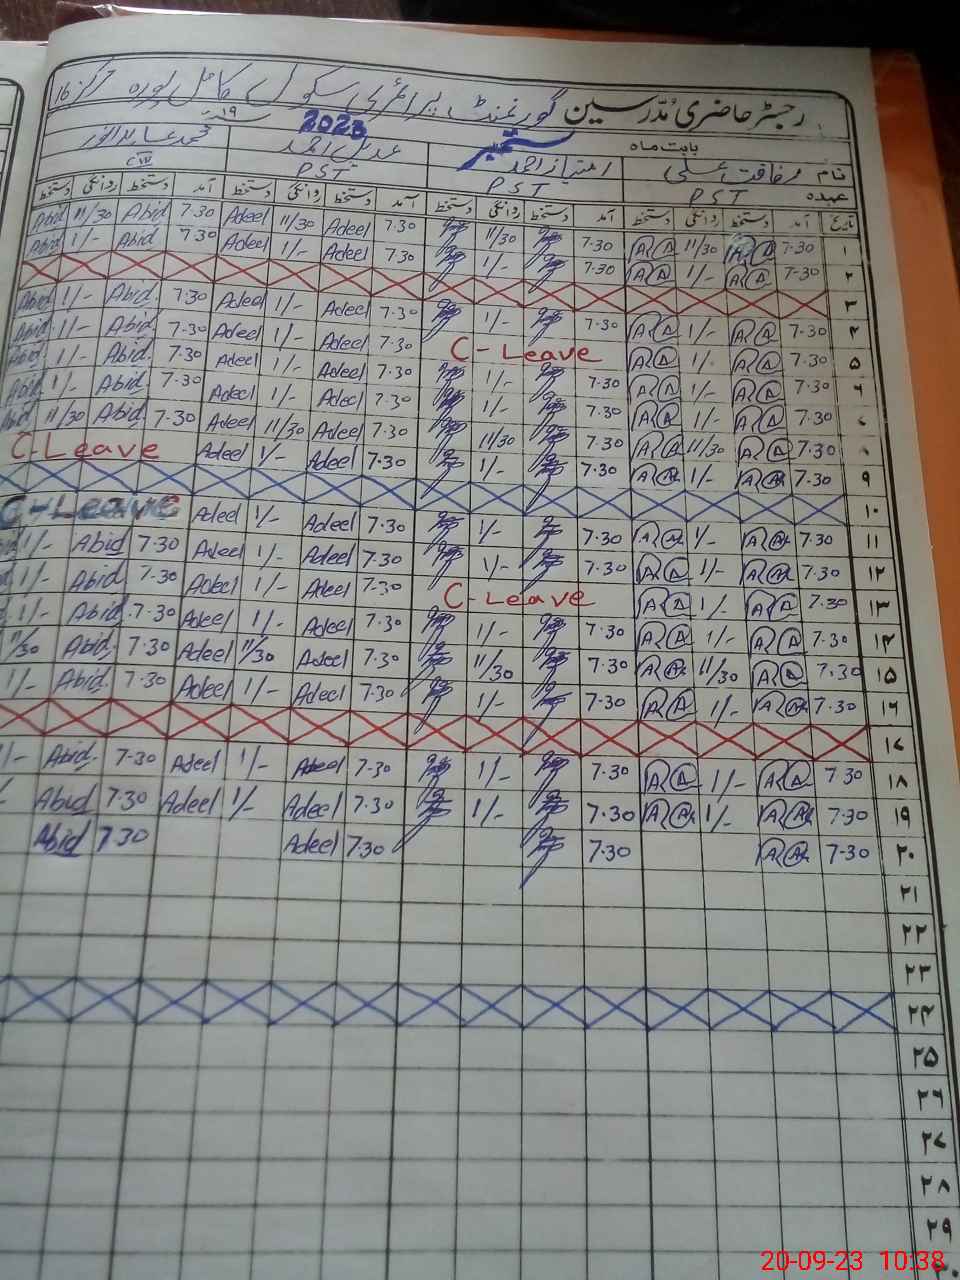 رجسٹر حاضری مدرسین گورنمنٹ پرائمری سکول کامل پورہ مرکز 16
بابت ماہ ستمبر 2023 ۱۹ء
نام رفاقت علی امتیاز احمد عدیل احمد محمد عابد انور
عہدہ PST PST PST
تاریخ آمد دستخط روانگی دستخط آمد دستخط روانگی دستخط آمد دستخط روانگی دستخط آمد دستخط روانگی دستخط
۱ 7-30 11/30 7.30 11/30 7.30 Adeel 11/30 Adeel 7.30 Abid 11/30 Abid
۲ 7-30 1/- 7-30 1/- 7.30 Adeel 1/- Adeel 7.30 Abid 1/- Abid
۳
۴ 7.30 1/- 7-30 1/- 7.30 Adeel 1/- Adeel 7.30 Abid. 1/- Abid
۵ 7.30 1/- C-Leave 7.30 Adeel 1/- Adeel 7.30 Abid 1/- Abid
۶ 7.30 1/- 7.30 1/- 7.30 Adeel 1/- Adeel 7.30 Abid. 1/- Abid
7.30 1/- 7.30 1/- 7.30 Adeel 1/- Adeel 7.30 Abid. 1/- Abid
7.30 11/30 7.30 11/30 7.30 Adeel 11/30 Adeel 7.30 Abid 11/30 Abid
۹ 7.30 1/- 7.30 1/- 7.30 Adeel 1/- Adeel C-Leave
۱۰
۱۱ 7.30 1/- 7.30 1/- 7.30 Adeel 1/- Adeel C-Leave
۱۲ 7.30 1/- 7.30 1/- 7.30 Adeel 1/- Adeel 7.30 Abid 1/-
۱۳ 7.30 1/- C-Leave 7-30 Adeel 1/- Adeel 7-30 Abid 1/-
۱۴ 7.30 1/- 7.30 1/- 7.30 Adeel 1/- Adeel 7-30 Abid. 1/-
۱۵ 7.30 11/30 7.30 11/30 7.30 Adeel 11/30 Adeel 7.30 Abid. 11/30
۱۶ 7.30 1/- 7-30 1/- 7.30 Adeel 1/- Adeel 7.30 Abid. 1/-
۱۷
۱۸ 7.30 1/- 7.30 1/- 7.30 Adeel 1/- Adeel 7-30 Abid. 1/-
۱۹ 7-30 1/- 7.30 1/- 7.30 Adeel 1/- Adeel 7.30 Abid
۲۰ 7-30 7.30 7.30 Adeel 7.30 Abid
۲۱
۲۲
۲۳
۲۴
۲۵
۲۶
۲۷
۲۸
۲۹
20-09-23 10:38